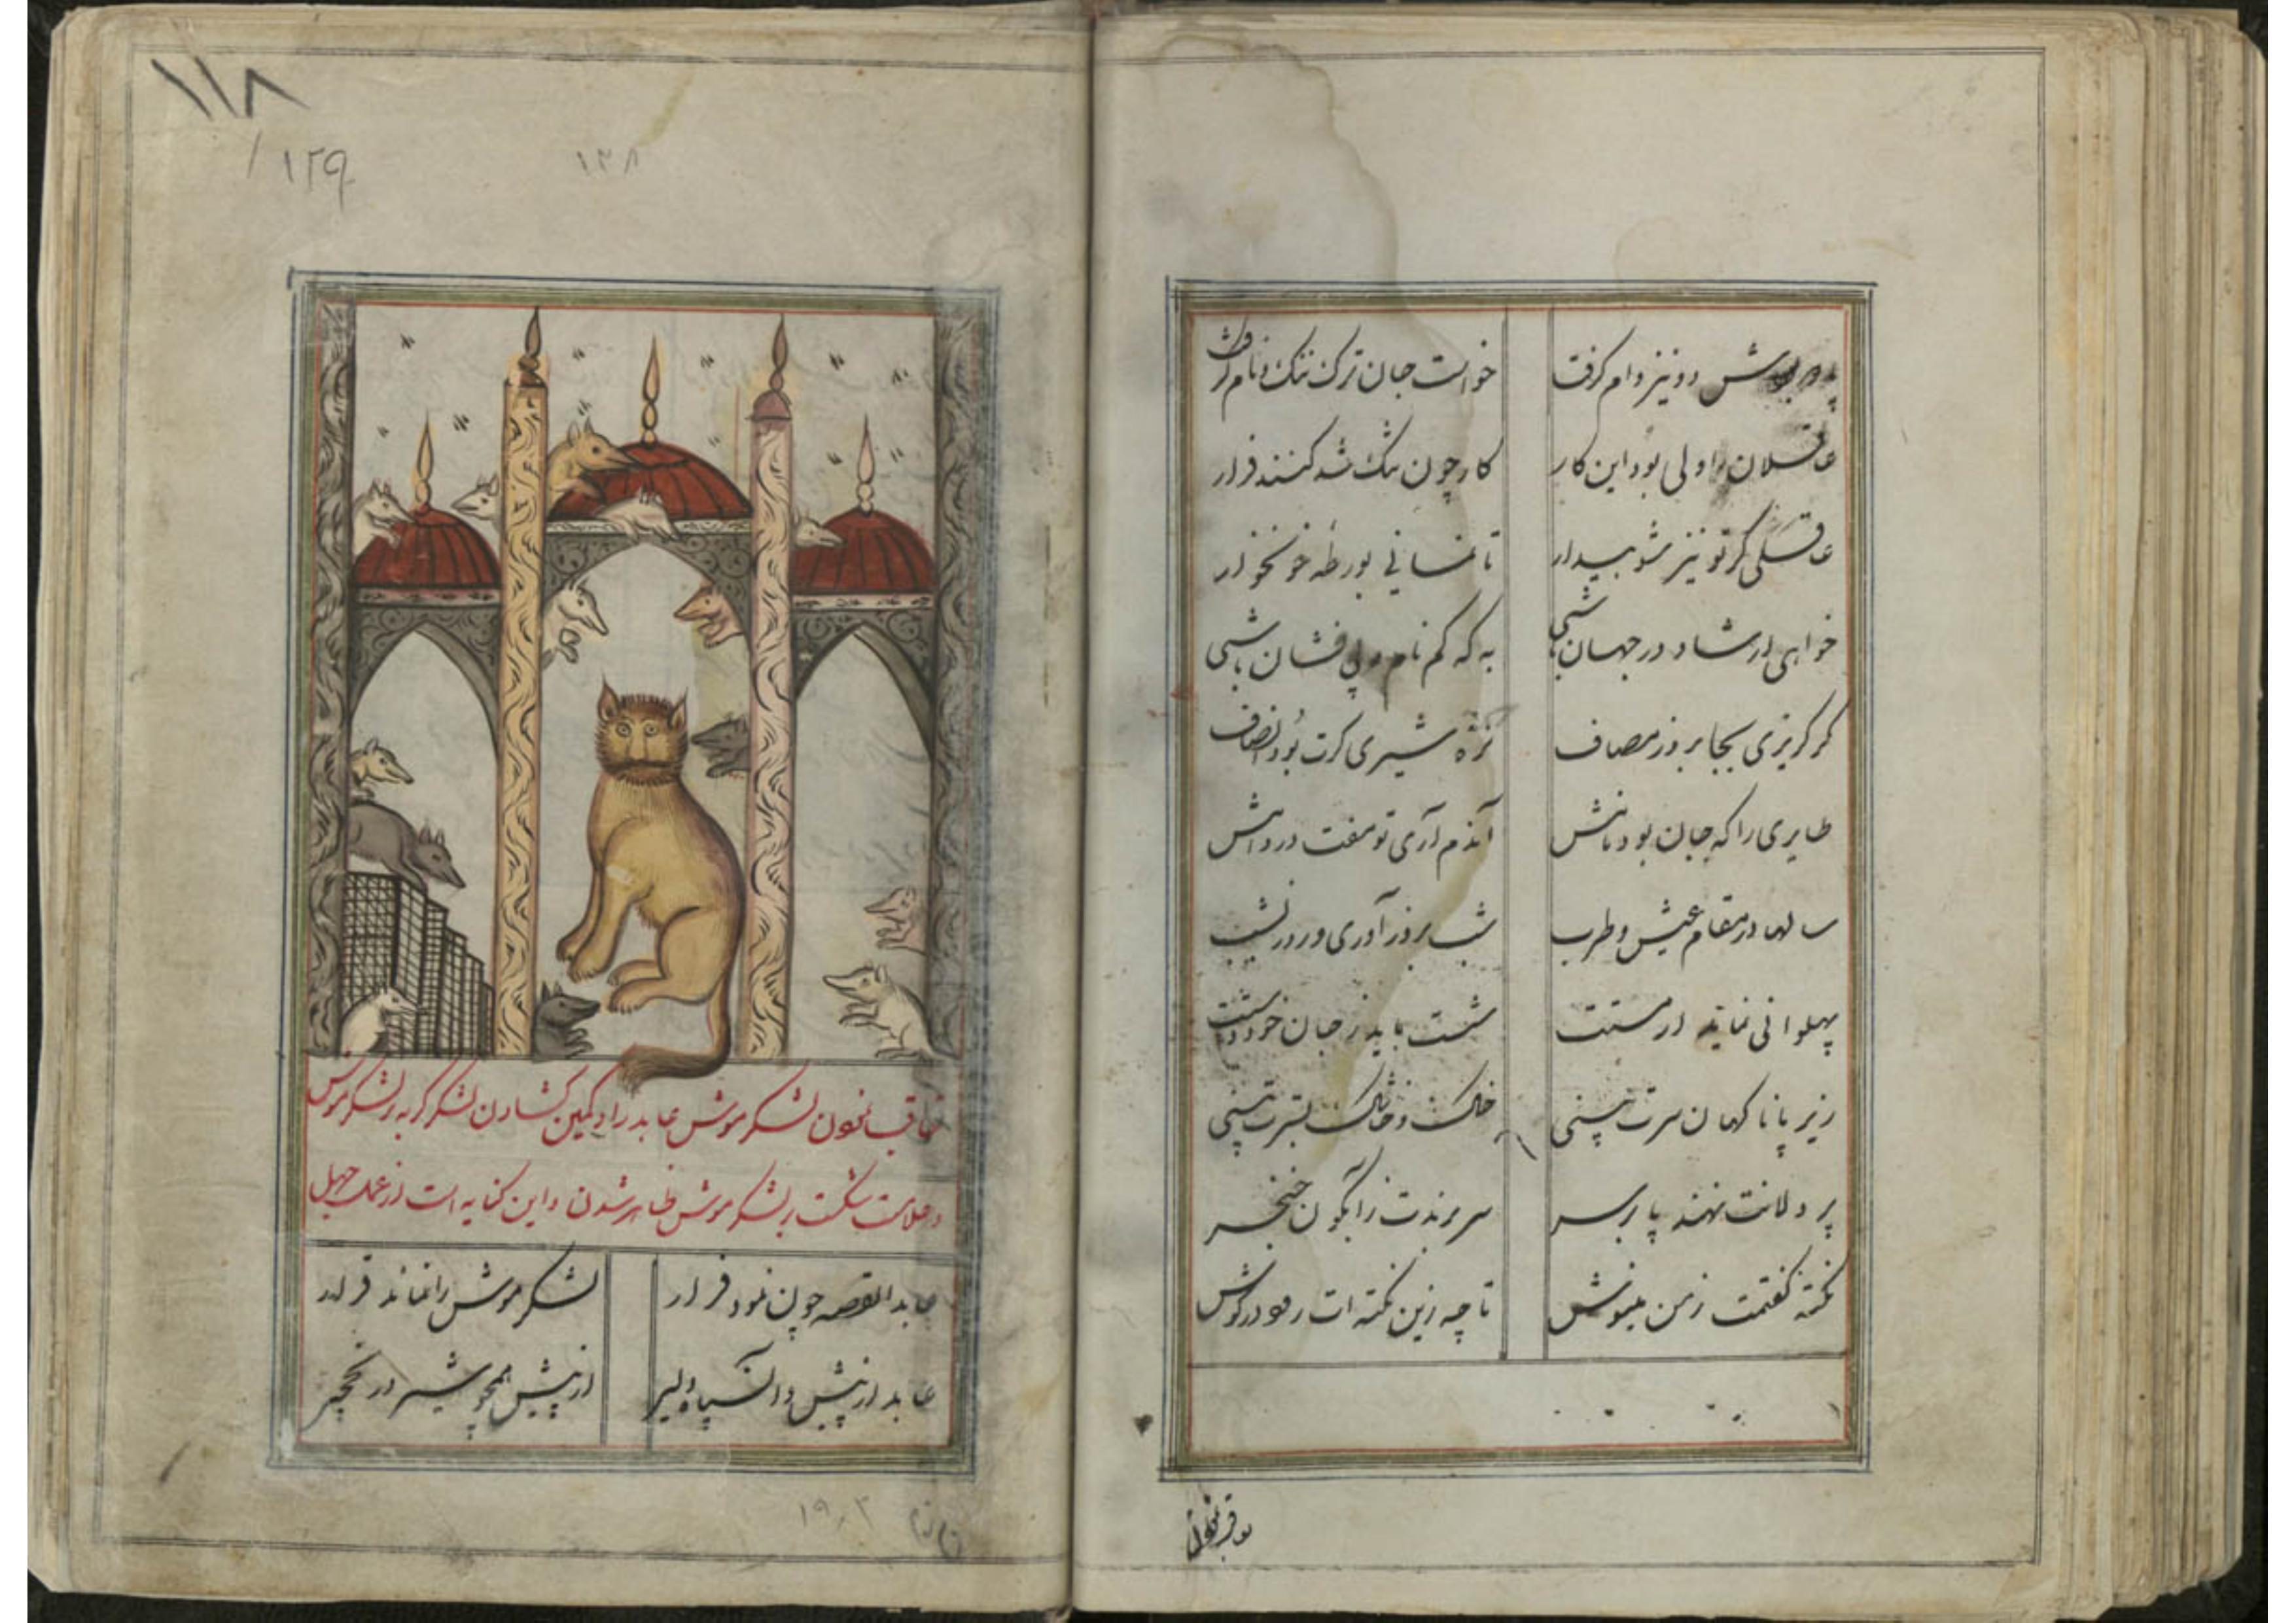 پدر موش دو نیز وام گرفت خواست جان ترک ننگ و نام گرفت
عاقلان را ولی بود این کار کار چون تنک شد کنند فرار
عاقلی گر تو نیز شو بیدار تا نمانی بورطه خونخوار
خواهی ار شاد در جهان باشی به که کم نام و بی نشان باشی
گر گریزی بجا بروز مصاف نره شیری گرت بود انصاف
طایری را که جان بود نامش آندم آری تو مفت در دامش
سالها در مقام عیش و طرب شب بروز آوری و روز بشب
پهلوانی نماید ار مستت شست باید ز جان خود دستت
زیر پا ناگهان سرت بینی خاک و خاشاک بسترت بینی
پر دلانت نهند پا بر سر سر برندت ز آبگون خنجر
نکته گفتمت ز من مینوش تا چه زین نکته ات رود در گوش
۱۱۸
۱۲۹
۱۲۸
تعاقب نمودن لشکر موش عابد را و کمین گشادن لشکر گربه بر لشکر موش
و علامت شکست بر لشکر موش ظاهر شدن و این کنایه است از عمل جهل
عابد القصه چون نمود فرار لشکر موش را نماند قرار
عابد از پیش و آن سپاه دلیر از پیش همچو شیر در نخچیر